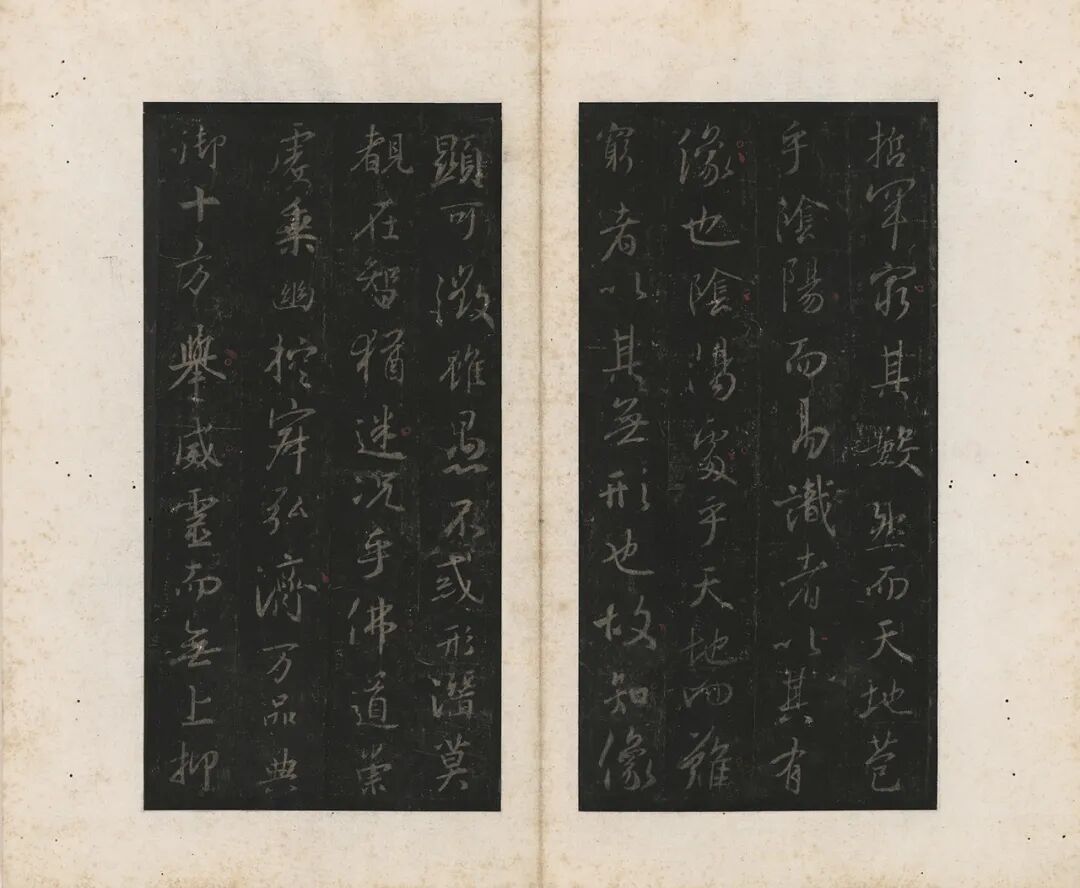 哲罕窮其數然而天地苞
乎陰陽而易識者以其有
像也陰陽處乎天地而難
窮者以其無形也故知像
顯可徵雖愚不惑形潛莫
覩在智猶迷況乎佛道崇
虛乘幽控寂弘濟万品典
御十方舉威靈而無上抑